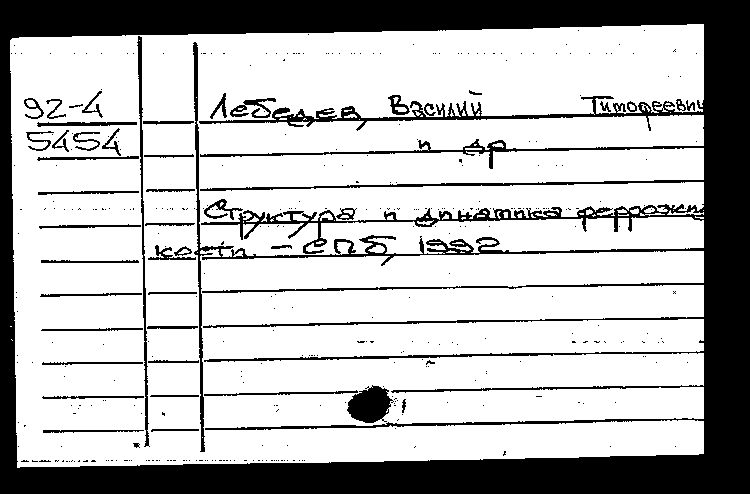 92-4 Лебедев, Василий Тимофеевич
5454 и др
Структура и динамика феррожид
кости. – СПб, 1992.